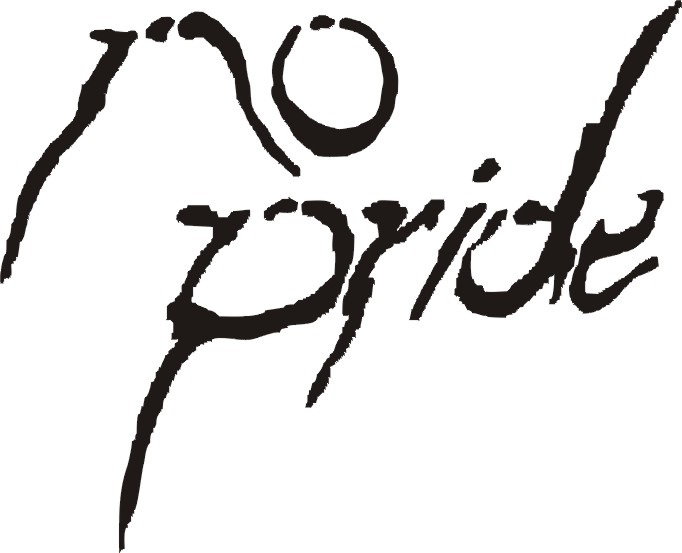 no
pride